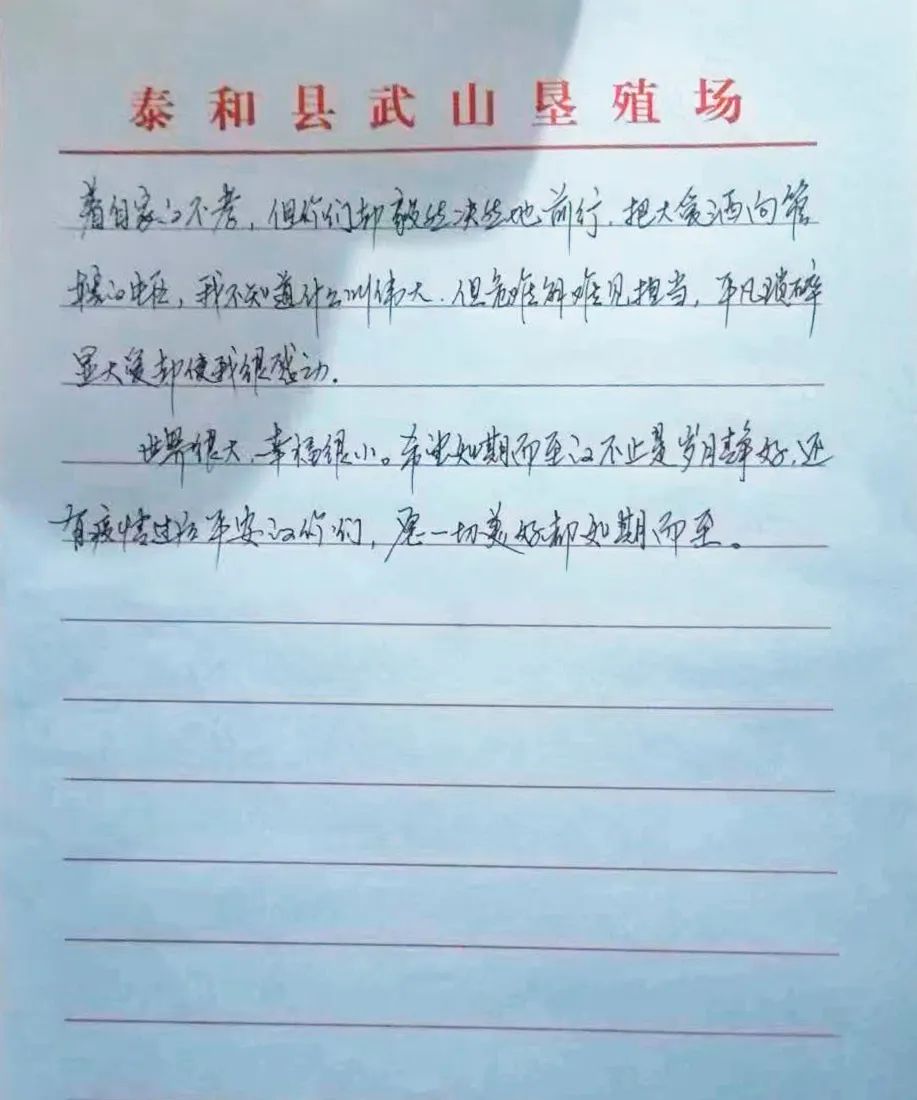 泰和县武山垦殖场
着自家的不考,但你们却毅然决然地前行,把大爱洒向管
辖的电,我不知道什么叫伟大,但危难时难见担当,平凡琐碎
显大爱却使我很感动.
世界很大,幸福很小。希望如期而至的不止是岁月静好,还
有疫情过后平安的你们,愿一切美好都如期而至。